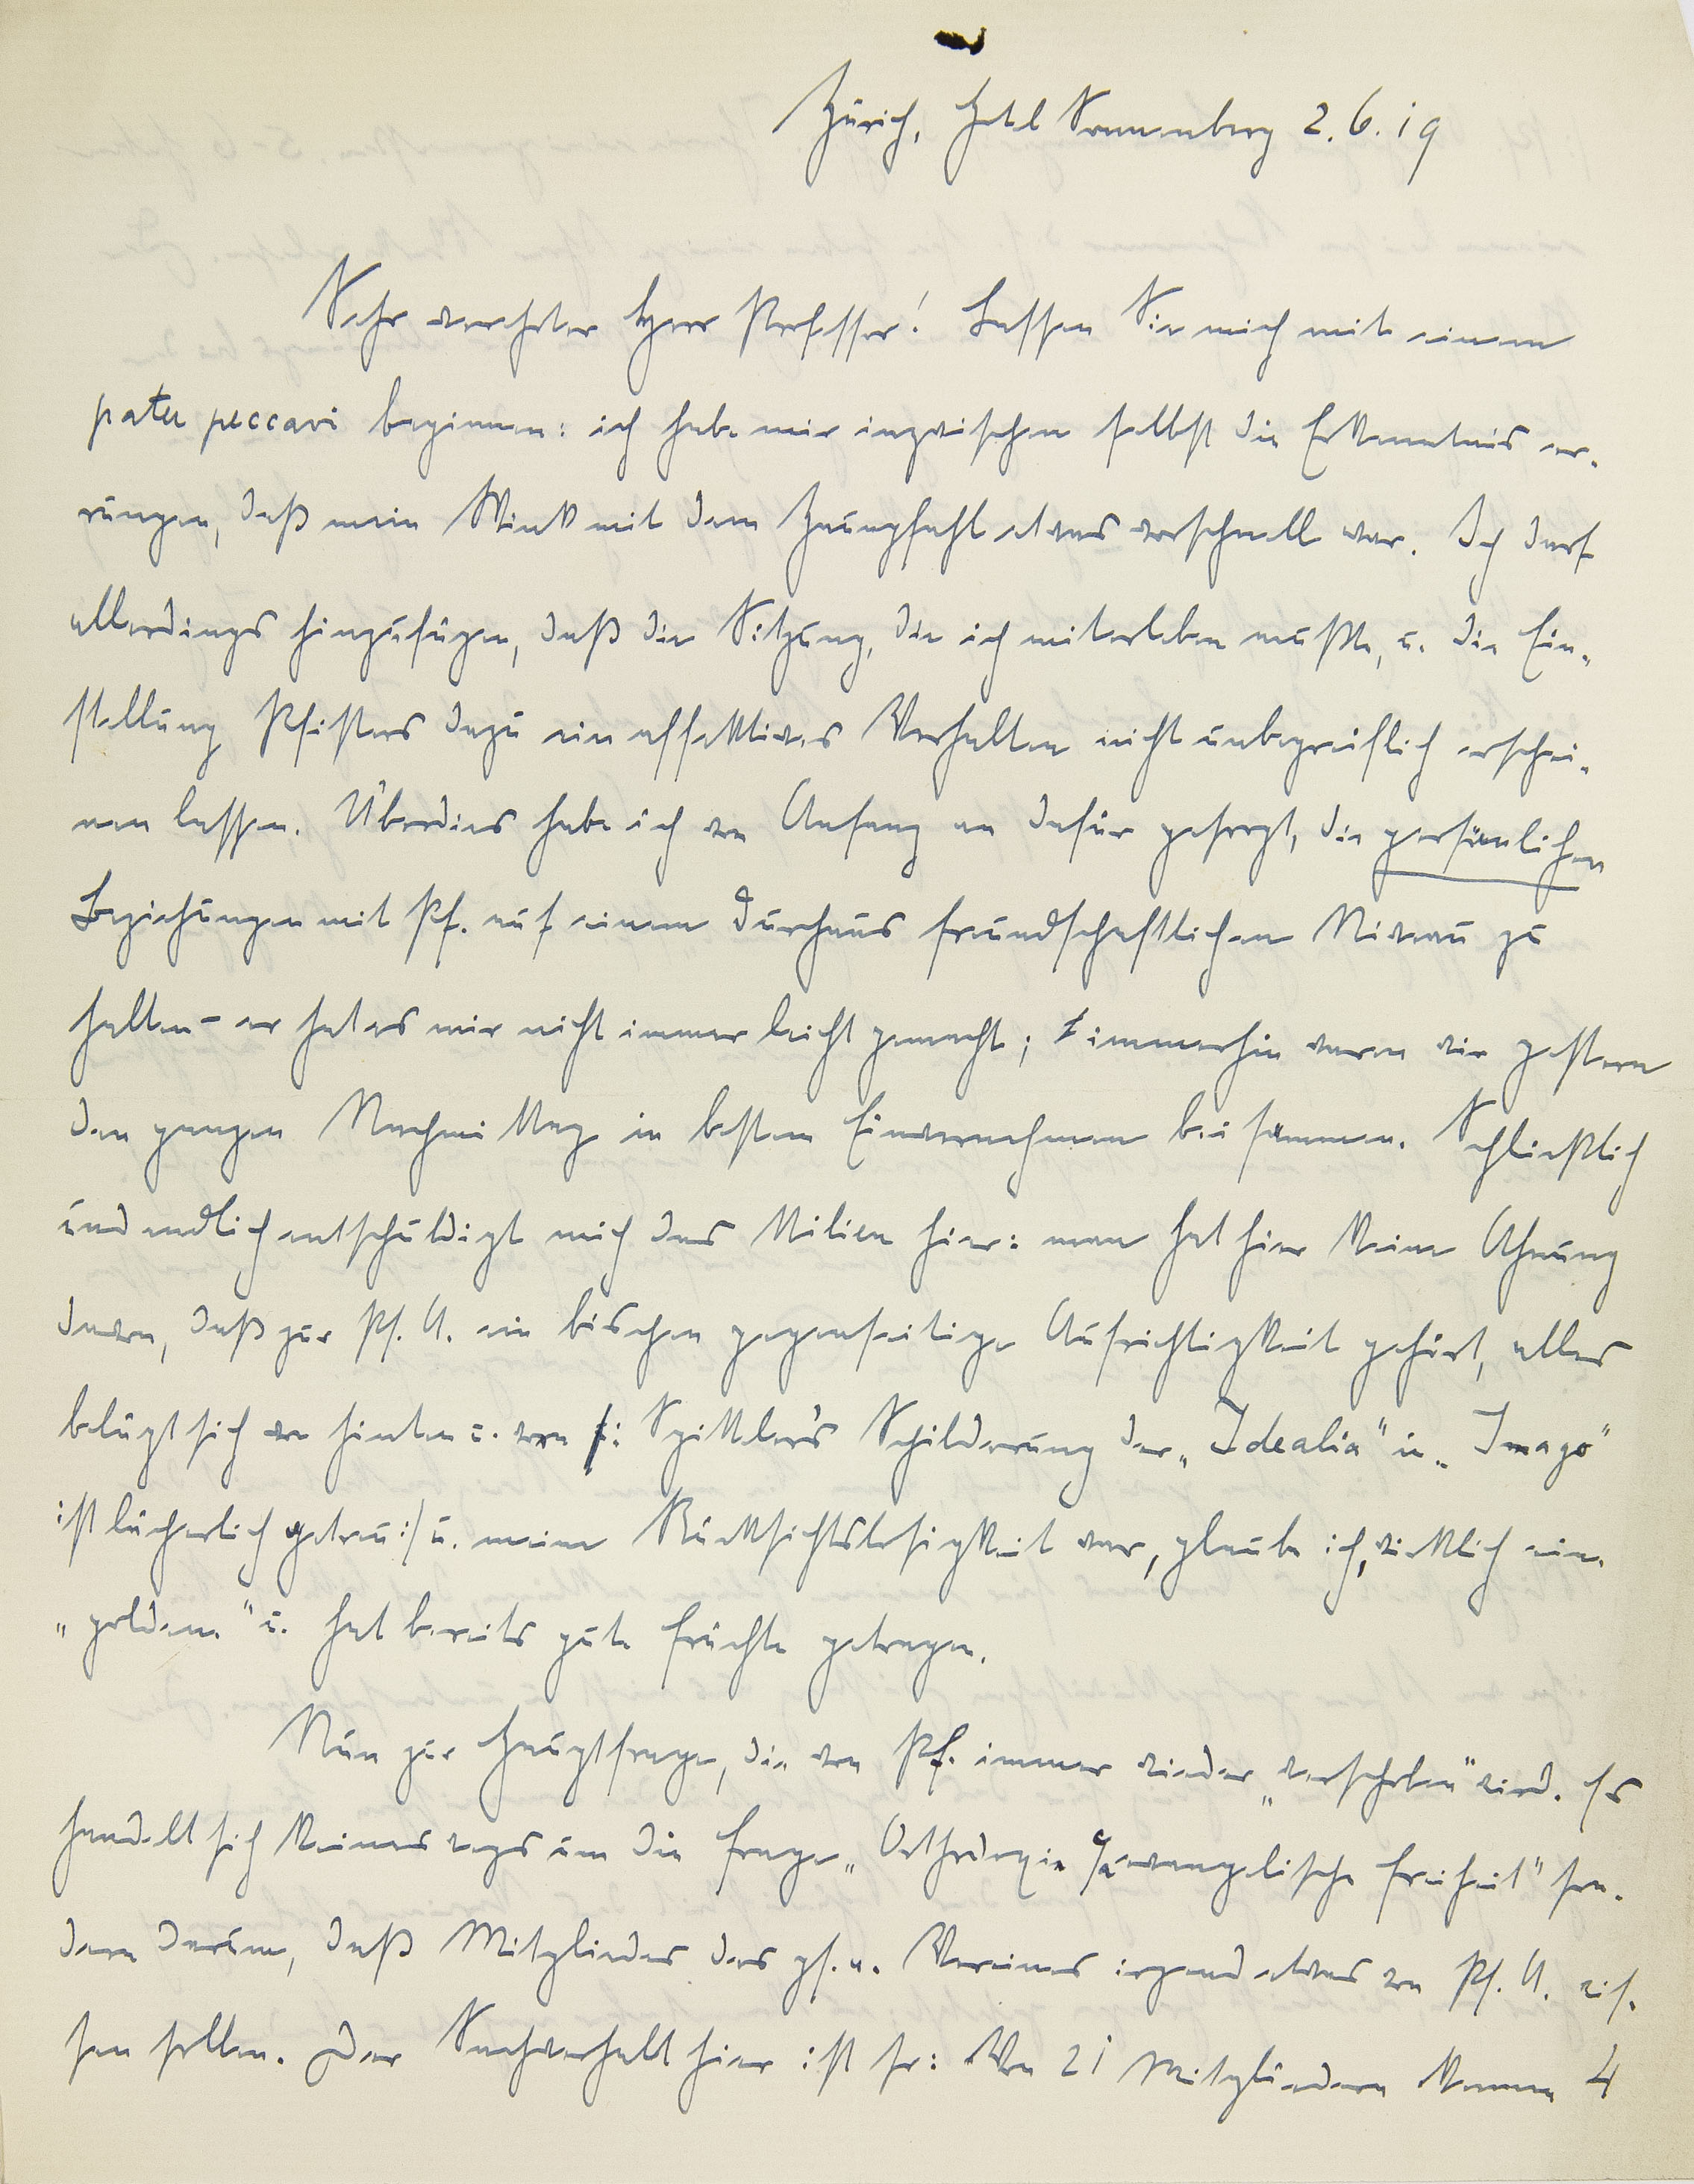 Zürich, Hotel Sonnenberg 2. 6. 19
Sehr verehrter Herr Professor! Lassen Sie mich mit einem
pater peccavi beginnen: ich habe mir inzwischen selbst die Erkenntnis er-
rungen, daß mein Wink mit dem Zaunpfahl etwas vorschnell war. Ich darf
allerdings hinzufügen, daß die Sitzung, die ich miterleben mußte, u. die Ein-
stellung Pfisters dazu ein affektives Verhalten nicht unbegreiflich erschei-
nen lassen. Überdies habe ich von Anfang an dafür gesorgt, die persönlichen
Beziehungen mit Pf. auf einem durchaus freundschaftlichen Niveau zu
halten – er hat es mir nicht immer leicht gemacht; immerhin waren wir gestern
den ganzen Nachmittag in bestem Einvernehmen beisammen. Schließlich
und endlich entschuldigt mich das Milieu hier: man hat hier keine Ahnung
davon, daß zur Ps. A. ein bischen gegenseitige Aufrichtigkeit gehört, alles
belügt sich von hinten u. vorn /: Spitteler's Schilderung der „Idealia" in „Imago"
ist lächerlich getreu :/ u. meine Rücksichtslosigkeit war, glaube ich, wirklich eine
„goldene" u. hat bereits gute Früchte getragen.
Nun zur Hauptfrage, die von Pf. immer wieder „verschoben" wird. Es
handelt sich keineswegs um die Frage „Orthodoxie evangelische Freiheit" son-
dern darum, daß Mitglieder des ps. a. Vereines irgend etwas von Ps. A. wis-
sen sollen. Der Sachverhalt hier ist so: Von 21 Mitgliedern kennen 4